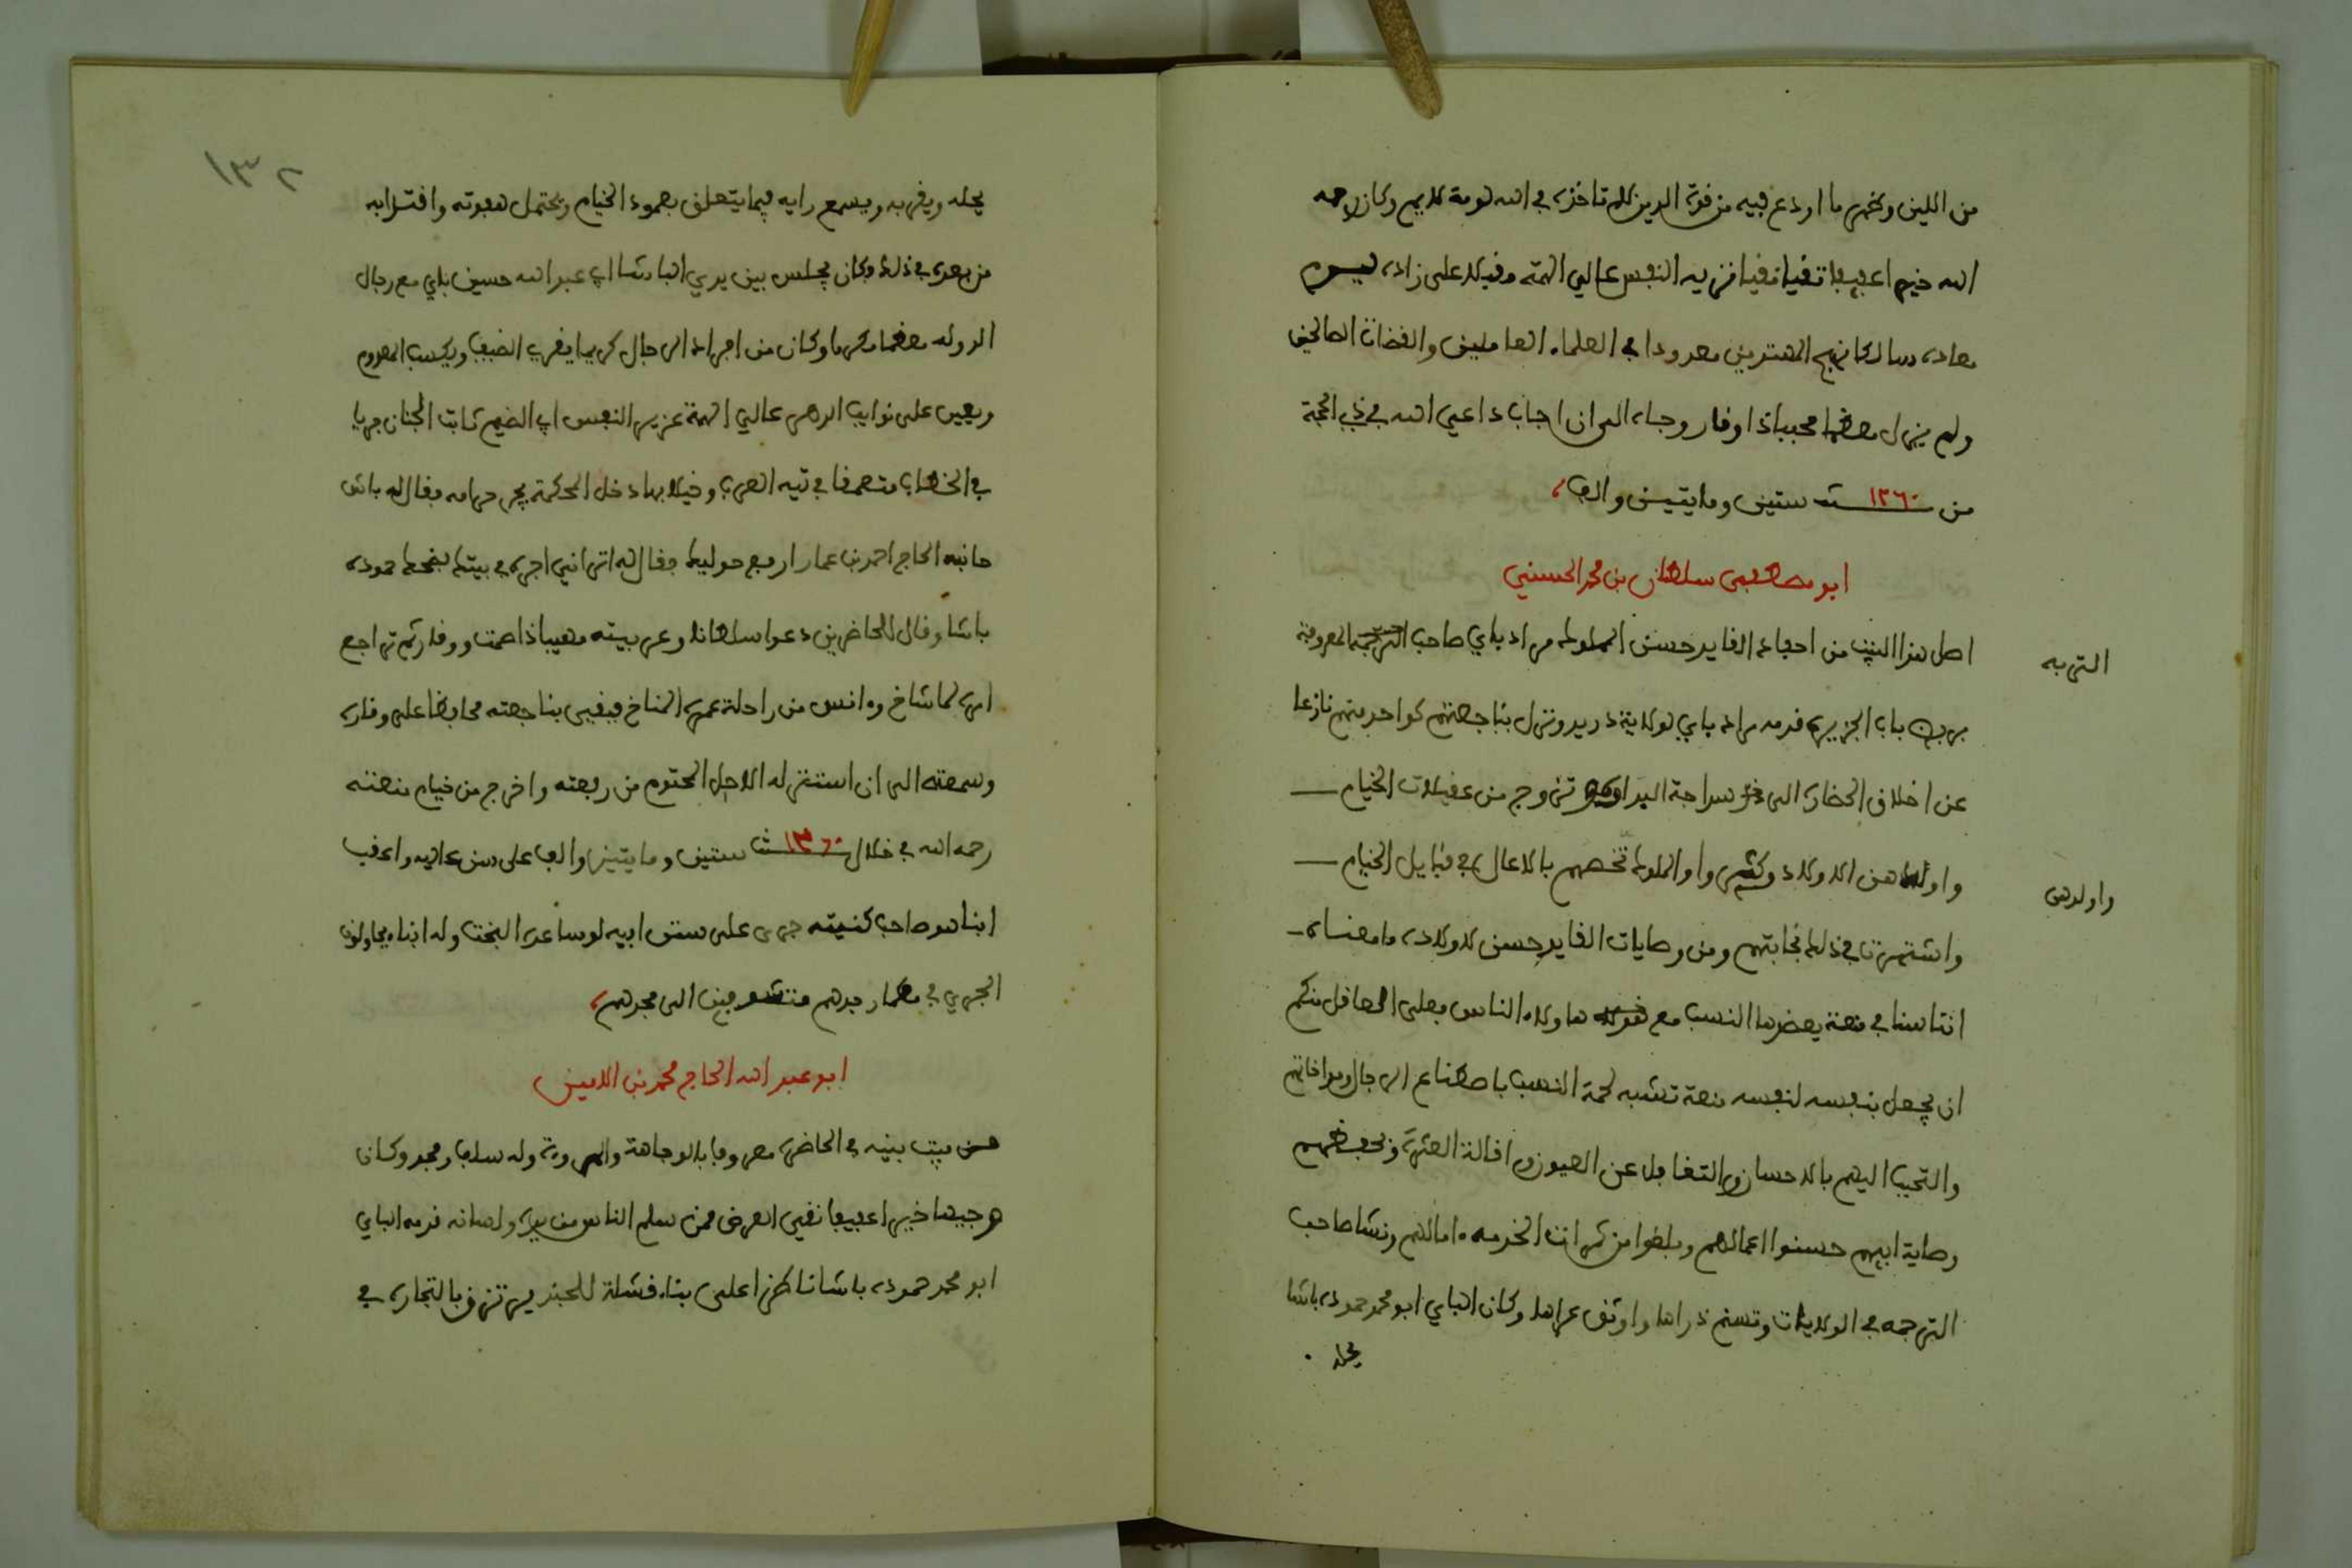 من اللين وظهر ما اودع فيه من قوة الدين لم تاخذه في الله لومة لايم وكان رحمه
الله خيرا عفيفا تقيا نقيا نزيه النفس عالي الهمة وقبلا على زاد
معاده سالكا نهج المهتدين معدودا في العلماء العاملين والقضات الصالحين
ولم يزل معظما محببا ذا وقار وجاه الى ان اجاب داعي الله في ذي الحجة
من سنة ١٢٦٠ ستين ومايتين والف
ابو مصطفى سلطان بن محمد الحسيني
اصل هذا البيت من احفاد القايد حسن المملوك مراد باي صاحب التربة المعروفة
التربه
بربض باب الجزيرة قدمه مراد باي لولاية دريد ونزل بناجعتهم كواحد منهم نازعا
عن اخلاق الحضارة الى سراجة البداوة تزوج من عقيلات الخيام
واولدهن الاولاد وكثير واو الملوك تخصهم بالاعمال في قبايل الخيام
واولدهن
واشتهرت في ذلك نجابتهم ومن وصايات القايد حسن لاولاده ما معناه
اننا لسنا في منعة يعضدها النسب مع هاولاء الناس فعلى العاقل منكم
ان يجعل بنفسه لنفسه منعة تشبه لحمة النسب باصطناع الرجال ومواخاتهم
والتحبب اليهم بالاحسان والتغافل عن العيوب واقالة العثرة وبحفظهم
وصاية ابيهم حسنوا اعمالهم وبلغوا من ثمرات الخدمه امالهم ونشا صاحب
الترجمه في الولايات وتسنم ذراها واوثق عراها وكان الباي ابو محمد حموده باشا
يجله
١٣٢
يجله ويقربه ويسمع رايه فيما يتعلق بعمود الخيام ويحتمل هفوته واقترابه
من بعده في ذلك وكان يجلس بين يدي الباشا ابي عبد الله حسين باي مع رجال
الدوله معظما مكرما وكان من افراد الرجال كريما يقري الضيف ويكسب المعدوم
ويعين على نوايب الدهر عالي الهمة عزيز النفس ابي الضيم ثابت الجنان جريا
في الخطاب متصفا في تيه العرب وخيلايها دخل المحكمة يجر حرامه فقال له باش
حانبه الحاج احمد بن عمار ارفع حوليك فقال له اتراني اجره في بيتك فضحك حموده
باشا وقال للحاضرين دعوا سلطانا وعربيته مهيبا ذا صمت ووقار ثم تراجع
امره لما شاخ وانس من راحلة عمره المناخ فبقي بناجعته محافظا على وقاره
وسمعته الى ان استنزله الاجل المحتوم من ربعته واخرج من خيام منعته
رحمه الله في خلال سنة ١٢٦٠ ستين ومايتين والف على سن عاليه واعقب
ابنا هو صاحب كنيته جرى على سنن ابيه لو ساعده البخت وله ابناء يحاولون
الجري في مضمار جدهم الى مجدهم
ابو عبد الله الحاج محمد بن الامين
من بيت بنيه في الحاضرة معروفا بالوجاهة والمروة وله سلف ومجد وكان
وجيها خيرا عفيفا نقي العرض ممن سلم الناس من يده ولسانه قدمه الباي
ابو محمد حموده باشا ناظرا على بناء قشلة للجند يرتزق بالتجاره في